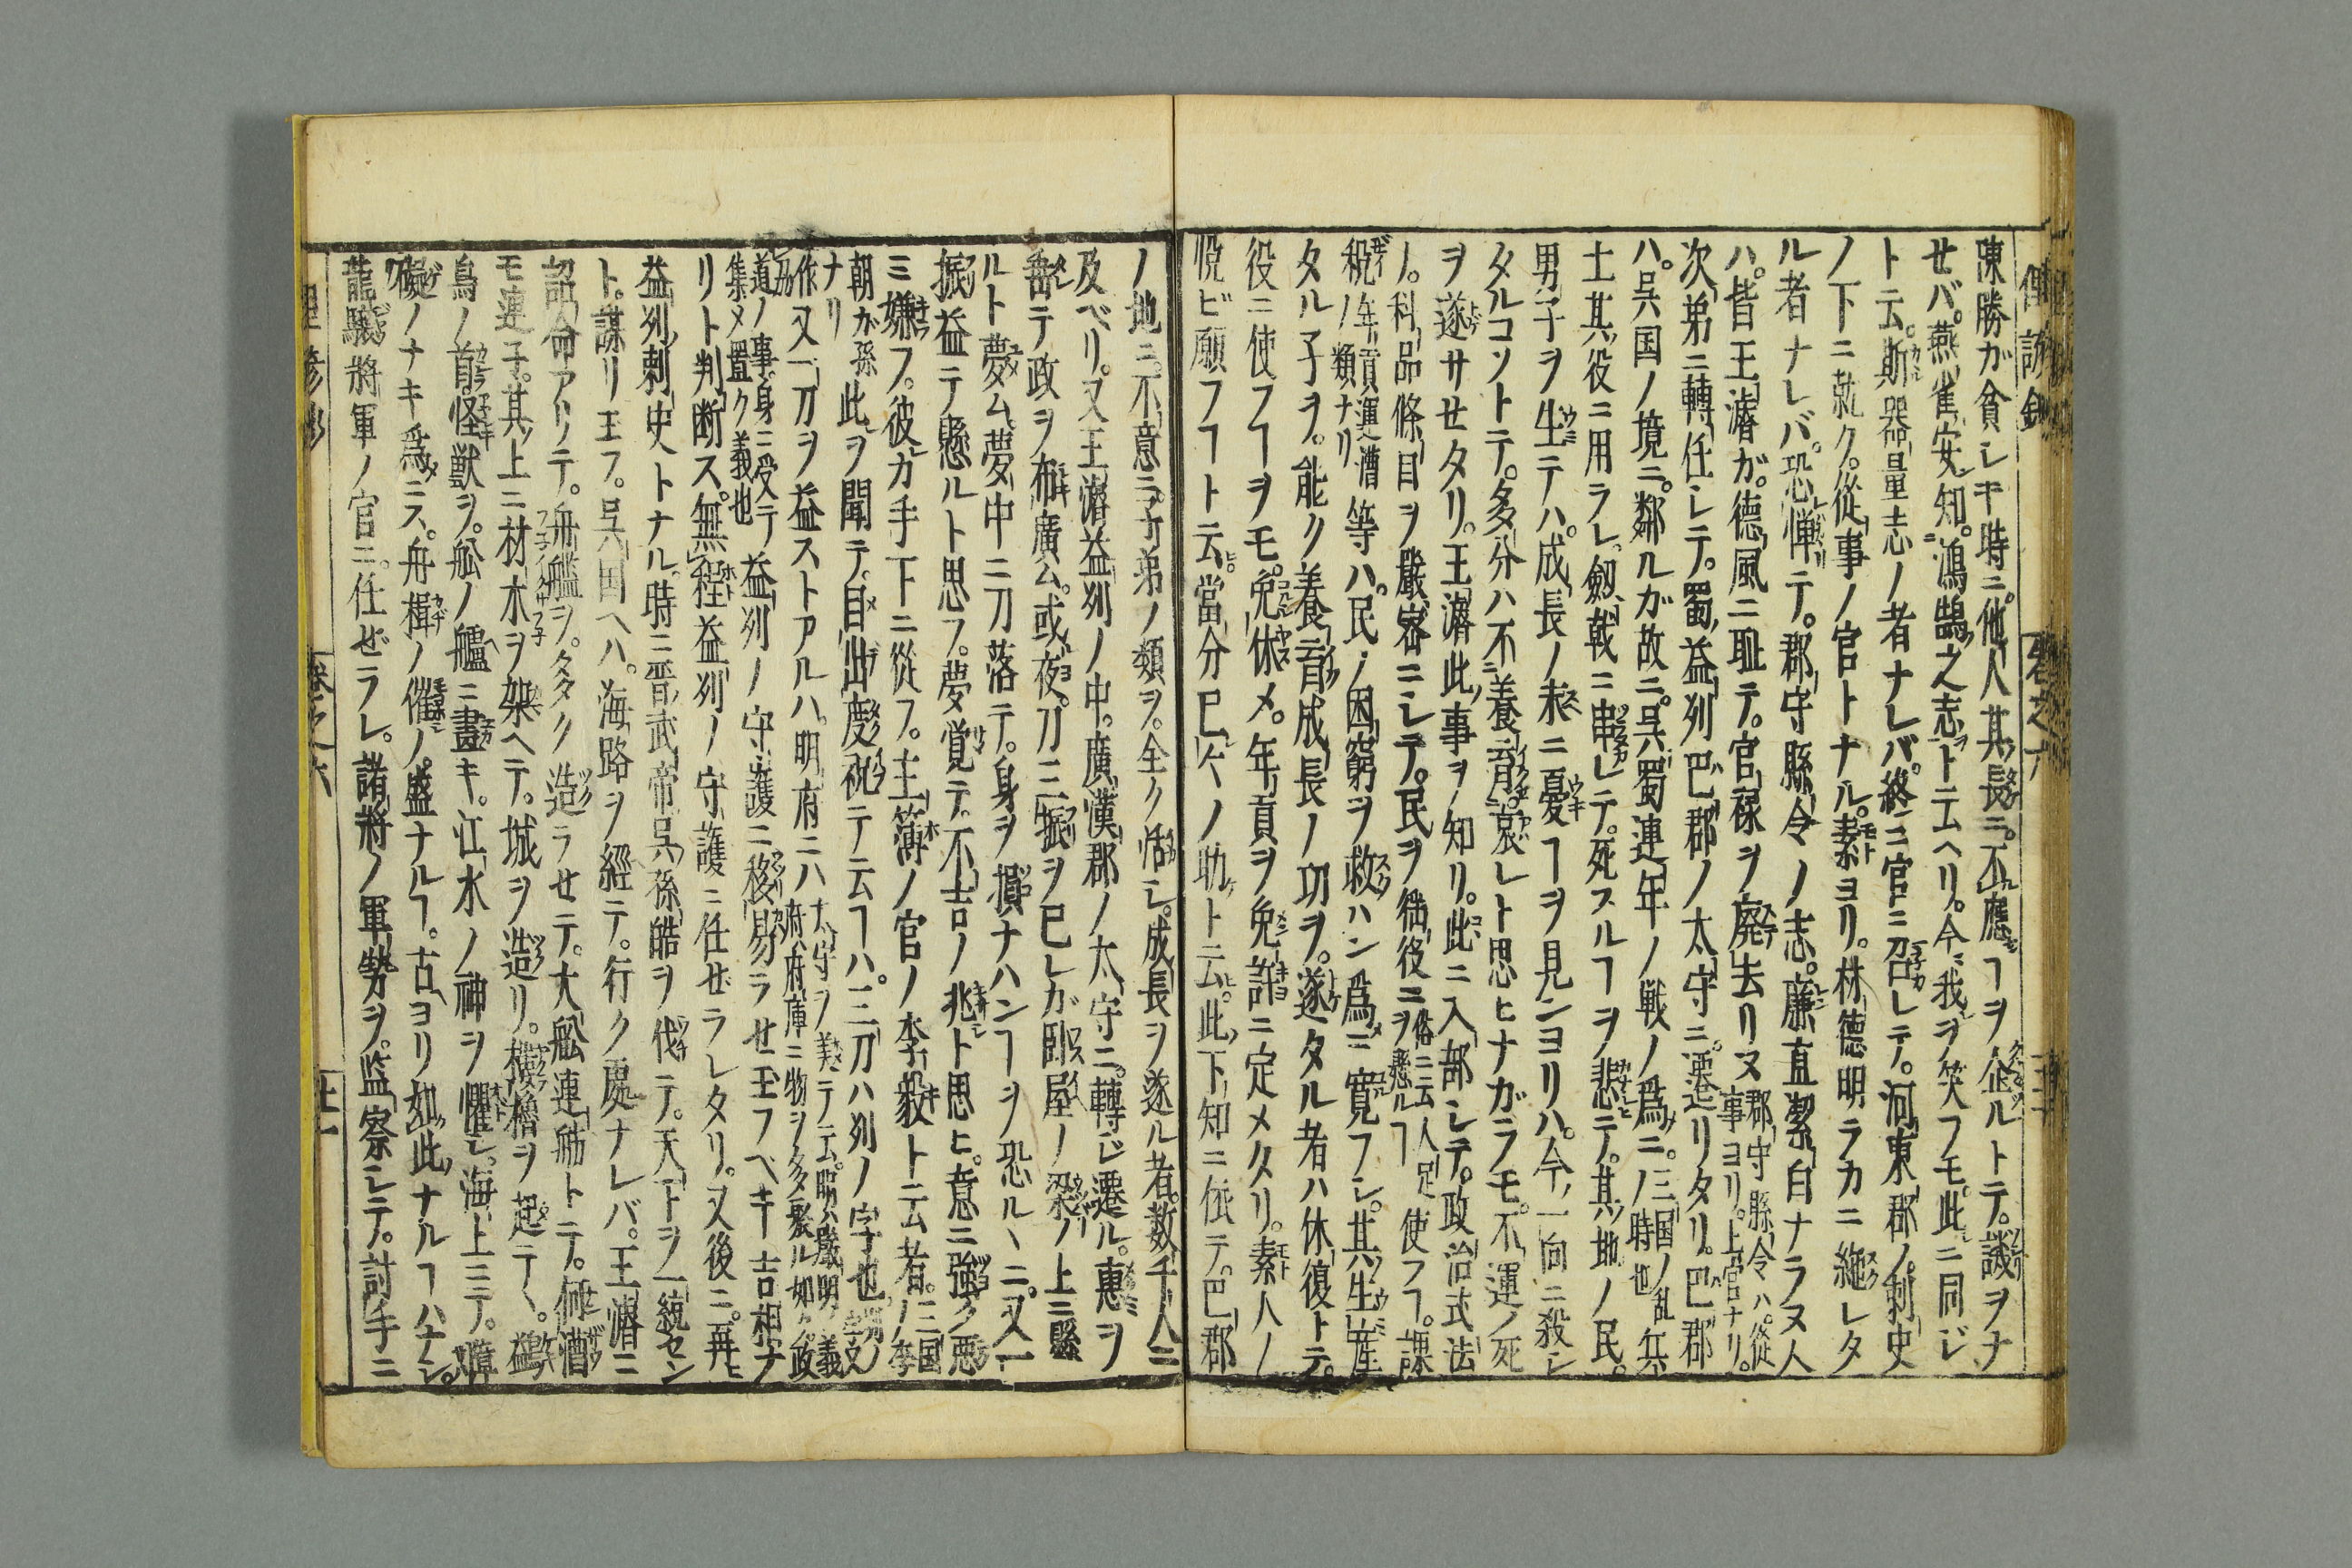 陳勝ガ貧シキ時ニ。他人其長ニ。不應ヿヲ企ルトテ。譏ヲナ
セバ。燕雀安知。鴻鵠之志ト云ヘリ。今我ヲ笑フモ。此ニ同ジ
ト云。斯器量志ノ者ナレバ。終ニ官ニ召レテ。河東郡ノ刺史
ノ下ニ就ク。從事ノ官トナル。素ヨリ。林德明ラカニ絁レタ
ル者ナレバ。恐憚テ。郡守縣令ノ志。廉直潔白ナラヌ人
ハ。皆王濬ガ。德風ニ耻テ。官禄ヲ廃去リヌ郡守縣令ハ。從事ヨリ。上官ナリ。
次弟ニ轉任レテ。蜀益列巴郡ノ太守ニ。遷リタリ。巴郡
ハ。呉国ノ境ニ。鄰ルガ故ニ。呉蜀連年ノ戦ノ爲ニ。三国ノ乱ノ時也兵
士其役ニ用ラレ。劔戟ニ串レテ。死スルヿヲ悲テ。其地ノ民。
男子ヲ生テハ。成長ノ末ニ憂ヿヲ見ンヨリハ。今一向ニ殺シ
タルコソトテ。多分ハ不養育。哀レト思ヒナガラモ。不運ノ死
ヲ遂サセタリ。王濬此事ヲ知リ。此ニ入部シテ。政治式法
ノ。科品條目ヲ嚴密ニレテ。民ヲ徭役ニ俗ニ云人足ヲ懸ルヿ使フヿ。課
税年貢運漕ノ類ナリ等ハ。民ノ困窮ヲ救ハン爲ニ寛フシ。其生産
タル子ヲ。能ク養育成長ノ功ヲ。遂タル者ハ休復トテ。
役ニ使フヿヲモ。免休メ。年貢ヲ免許ニ定メタリ。素人ノ
悦ビ願フヿト云。當分巳レ々ノ助ト云。此下知ニ依テ。巴郡
ノ地ニ。不意ニ。子弟ノ類ヲ。全ク活シ。成長ヲ遂ル者。数千人ニ
及ベリ。又王濬益列ノ中。廣漢郡ノ太守ニ。轉ジ遷ル。惠ヲ
垂テ政ヲ布廣ム。或夜。刀三振ヲ巳レガ臥屋ノ梁ノ上ニ懸
ルト夢ム。夢中ニ刀落テ。身ヲ損ナハンヿヲ恐ルヽニ。又一
振益テ懸ルト思フ。夢覚テ。不吉ノ兆ト思ヒ。意ニ強ク悪
ミ嫌フ。彼カ手下ニ從フ。主簿ノ官ノ李毅ト云者。三国ノ李
朝ガ孫ナリ此ヲ聞テ。目出度祝テ云ヿハ。三刀ハ列ノ字也
作又一刀ヲ益ストアルハ。明府ニハ太守ヲ美テ云。昭ハ嚴明ノ義府ハ府庫ニ物ヲ多聚ル如ク。政
道ノ事身ニ受テ集メ置ク義也益列ノ守護ニ移易ラセ玉フベキ吉相ナ
リト判断ス。無程益列ノ守護ニ任ゼラレタリ。又後ニ。再ヒ
益列刺史トナル。時ニ晋武帝呉孫皓ヲ伐テ。天下ヲ一統セン
ト。謀リ玉フ。呉国ヘハ。海路ヲ經テ。行ク處ナレバ。王濬ニ
詔命アリテ。舟艦ヲ。多ク造ラセテ。大舩連舫トテ。
モ連子。其上ニ材木ヲ架ヘテ。城ヲ造リ。樓櫓ヲ起テヽ。鷁
鳥ノ首怪獣ヲ。舩ノ艫ニ畫キ。江水ノ神ヲ懼シ。海上ニテ。障
礙ノナキ爲ニス。舟楫ノ催ノ。盛ナルヿ。古ヨリ如此ナルヿハナシ。又
龍驤將軍ノ官ニ。任ゼラレ。諸將ノ軍勢ヲ。監察シテ。討手ニ